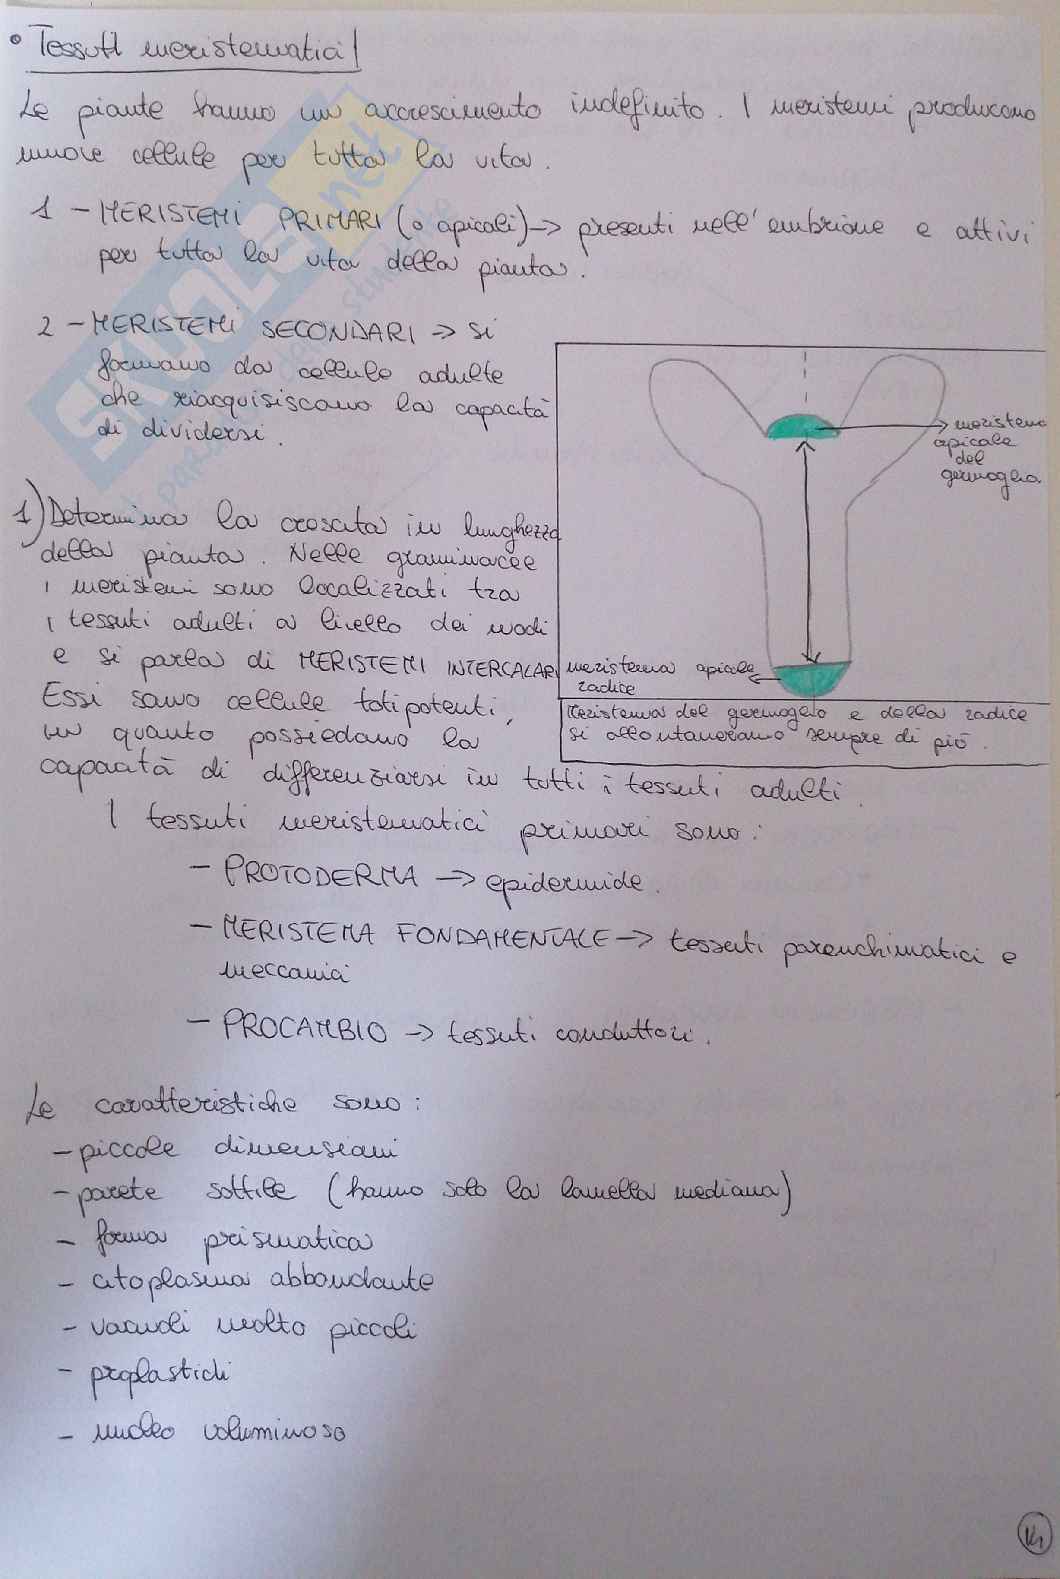 • Tessuti meristematici
Le piante hanno un accrescimento indefinito. I meristemi producono
nuove cellule per tutta la vita.
1 - MERISTEMI PRIMARI (o apicali) -> presenti nell'embrione e attivi
per tutta la vita della pianta.
2 - MERISTEMI SECONDARI -> si
formano da cellule adulte
che riacquisiscono la capacità
di dividersi.
meristema
apicale
del
germoglio
1) Determina la crescita in lunghezza
della pianta. Nelle graminacee
i meristemi sono localizzati tra
i tessuti adulti a livello dei nodi
e si parla di MERISTEMI INTERCALARI
Essi sono cellule totipotenti,
in quanto possiedono la
capacità di differenziarsi in tutti i tessuti adulti.
meristema apicale
radice
Meristema del germoglio e della radice
si allontaneranno sempre di più.
I tessuti meristematici primari sono:
- PROTODERMA -> epidermide.
- MERISTEMA FONDAMENTALE -> tessuti parenchimatici e
meccanici
- PROCAMBIO -> tessuti conduttori.
Le caratteristiche sono:
- piccole dimensioni
- parete sottile (hanno solo la lamella mediana)
- forma prismatica
- citoplasma abbondante
- vacuoli molto piccoli
- proplastidi
- nucleo voluminoso
SKUOLA.net